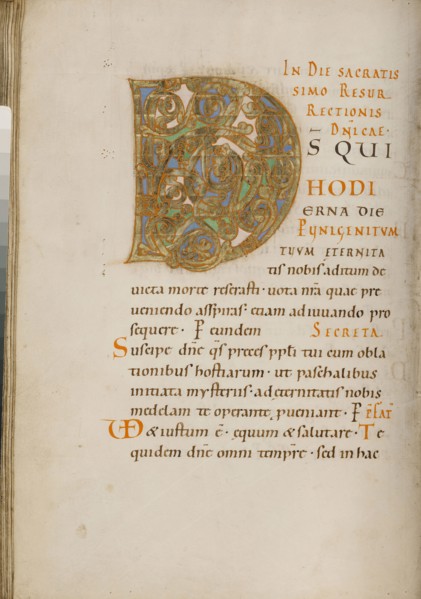 IN DIE SACRATIS
SIMO RESUR
RECTIONIS
DN̄ICAE·
D S̄ QUI
HODI
ERNA DIE
P UNIGENITUM
TUUM ETERNITA
tis nobis aditum de
victa morte reserasti· vota nr̄a quae pre
veniendo aspiras· etiam adiuvando pro
sequere· P eundem SECRETA
Suscipe dn̄e qs̄ preces ppli tui cum obla
tionibus hostiarum· ut paschalibus
initiata mysteriis· ad eternitatis nobis
medelam te operante pveniant· P
VD & iustum ē· equum & salutare· Te
quidem dn̄e omni tempr̄e· sed in hac